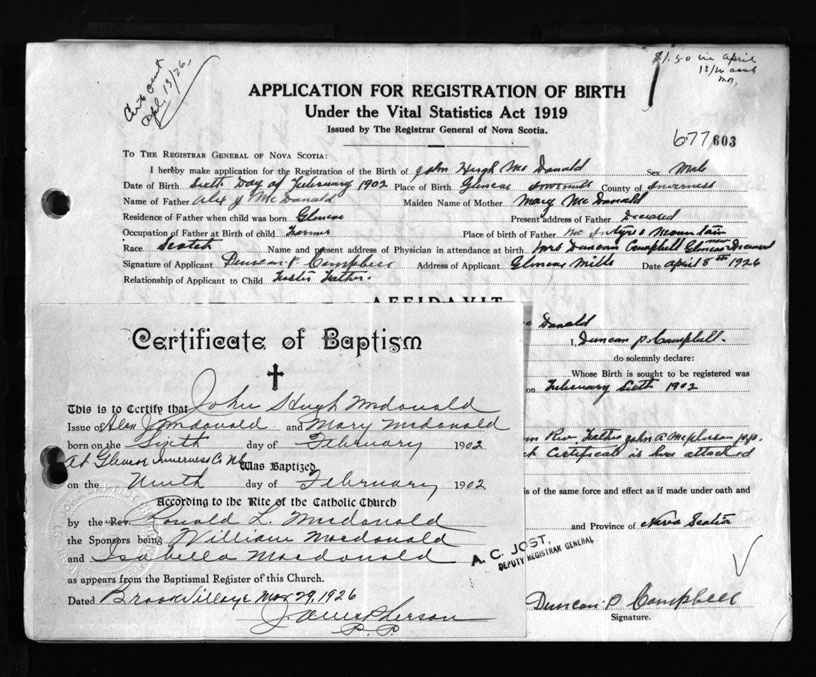 Cert sent
Apl. 13/26.
$1.50 in april
12/26
APPLICATION FOR REGISTRATION OF BIRTH
Under the Vital Statistics Act 1919
Issued by The Registrar General of Nova Scotia.
677603
To The Registrar General of Nova Scotia:
I hereby make application for the Registration of the Birth of John Hugh Mc Donald Sex Male
Date of Birth Sixth Day of February 1902 Place of Birth Glencoe Inverness County of Inverness
Name of Father Alex J McDanald Maiden Name of Mother Mary McDonald
Residence of Father when child was born Glencoe Present address of Father Deceased
Occupation of Father at Birth of child Farmer Place of birth of Father Mc Intyre's Mountain
Race Scotch Name and present address of Physician in attendance at birth Mrs Duncan Campbell Glencoe now Deceased
Signature of Applicant Duncan P. Campbell Address of Applicant Glencoe Mills Date April 8th 1926
Relationship of Applicant to Child Foster Father.
AFFIDAVIT
Donald
I, Duncan P. Campbell.
do solemnly declare:
Whose Birth is sought to be registered was
on February Sixth 1902
Rev Father John A McPherson P.P.
Certificate is here attached
is of the same force and effect as if made under oath and
and Province of Nova Scotia
Duncan P Campbell
Signature.
Certificate of Baptism
This is to Certify that John Hugh McDonald
Issue of Alex J McDonald and Mary McDonald
born on the Sixth day of February 1902
At Glencoe Inverness Co N.S. Was Baptized
on the Ninth day of February 1902
According to the Rite of the Catholic Church
by the Rev. Ronald L. McDonald
the Sponsors being William Macdonald
and Isabella Macdonald
as appears from the Baptismal Register of this Church.
Dated Brook Village Mar 29, 1926
J. A. McPherson
P. P.
A. C. JOST,
DEPUTY REGISTRAR GENERAL